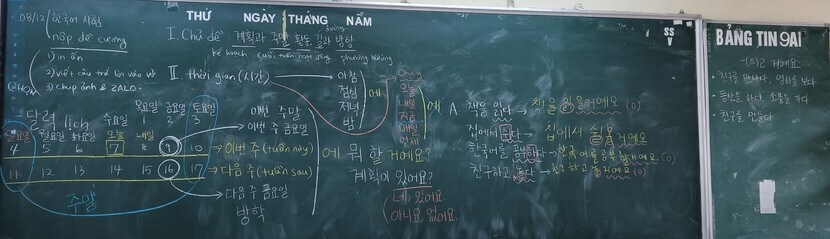 THỨ NGÀY THÁNG NĂM
08/12/ 한국어 시험
nộp đề cương
1) in ấn
2) viết câu trả lời vào vở
3) chụp ảnh & ZALO.
I. Chủ đề 계획과 주말 활동 길과 방향
kế hoạch cuối tuần hoạt động phương hướng
II. thời gian (시간)
아침
점심
저녁
밤
에
오늘
내일
지금
매일
언제
달력 lịch
수요일 목요일 금요일 토요일
1 2 3
일요일 월요일 화요일 오늘 내일
4 5 6 7 8 9 10
11 12 13 14 15 16 17
주말
이번 주말
이번주 금요일
이번 주 (tuần này)
다음 주 (tuần sau)
다음주 금요일
방학
에 뭐 할 거예요?
계획이 있어요?
네 있어요.
아니요 없어요.
에 A
책을 읽다 → 책을 읽을거예요 (0)
집에서 쉬다 → 집에서 쉴 거예요
한국어를 공부하다 → 한국어를 공부할거예요 (0)
친구하고 놀다 → 친구하고 놀거예요 (0)
SS
V
BẢNG TIN 9A1
-(으)ㄹ 거예요.
친구를 만나다. 영화를 보다